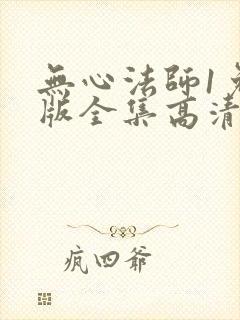 無心法師1
版全集高清
疯四爷